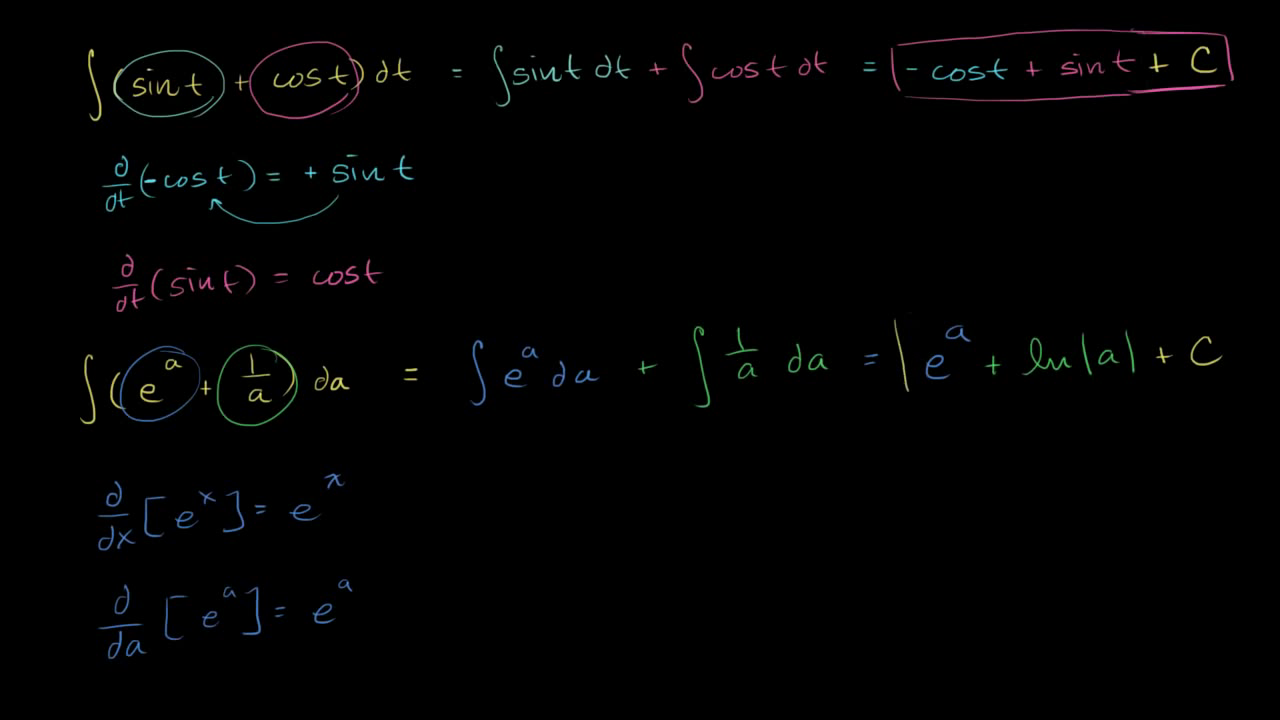 ∫(sin t + cos t) dt = ∫sin t dt + ∫cos t dt = -cos t + sin t + C
d/dt (-cos t) = + sin t
d/dt (sin t) = cos t
∫(e^a + 1/a) da = ∫e^a da + ∫ 1/a da = e^a + ln|a| + C
d/dx [e^x] = e^x
d/da [e^a] = e^a